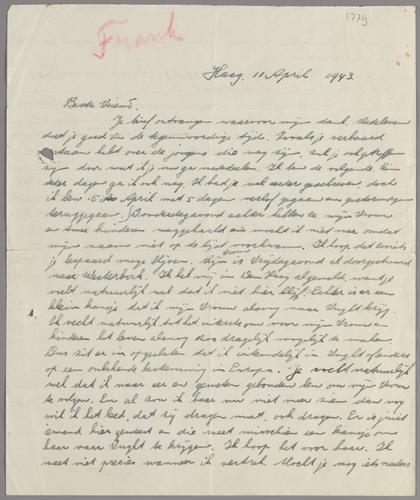 1779
Frank
Haag, 11 April 1943.
Beste Vriend.
Je brief ontvangen waarvoor mijn dank.
dat je goed in de tegenwoordige tijd. Zooals je verbaasd
staan hebt over de jongens die nog zijn, zul je
zijn door wat ik je nu ga mededeelen. Ik ben de volgende
deze dagen ga ik ook nog. Ik had je wel eerder geschreven, doch
ik ben 5 April met 5 dagen verlof gegaan en gisteren
teruggegaan. Donderdagavond mijn Vrouw
en twee kinderen weggehaald en mocht ik niet mee omdat
mijn naam niet op de lijst voorkwam. Ik hoop dat
je bespaard moge blijven. Zijn Vrijdagavond al doorgestuurd
naar Westerbork. Ik heb mij in Den Haag afgemeld, want je
voelt natuurlijk wel dat ik niet hier blijf. Echter is er een
klein kansje dat ik mijn Vrouw alsnog naar Vught krijg.
Ik vecht natuurlijk tot het uiterste om voor mijn Vrouw en
kinderen het leven alsnog zoo dragelijk mogelijk te maken.
Dus zit er in opgesloten dat ik uiteindelijk in Vught of anders
op een onbekende bestemming in Europa. Je voelt natuurlijk
wel dat ik naar eer en geweten gebonden ben om mijn Vrouw
te volgen. En al zou ik haar nu niet meer zien dan nog
wil ik het leed, dat zij dragen moet, ook dragen. Er is juist
iemand hier geweest en die weet misschien een kansje om
haar naar Vught te krijgen. Ik hoop het voor haar. Ik
weet niet precies wanneer ik vertrek. Mocht je nog iets nader